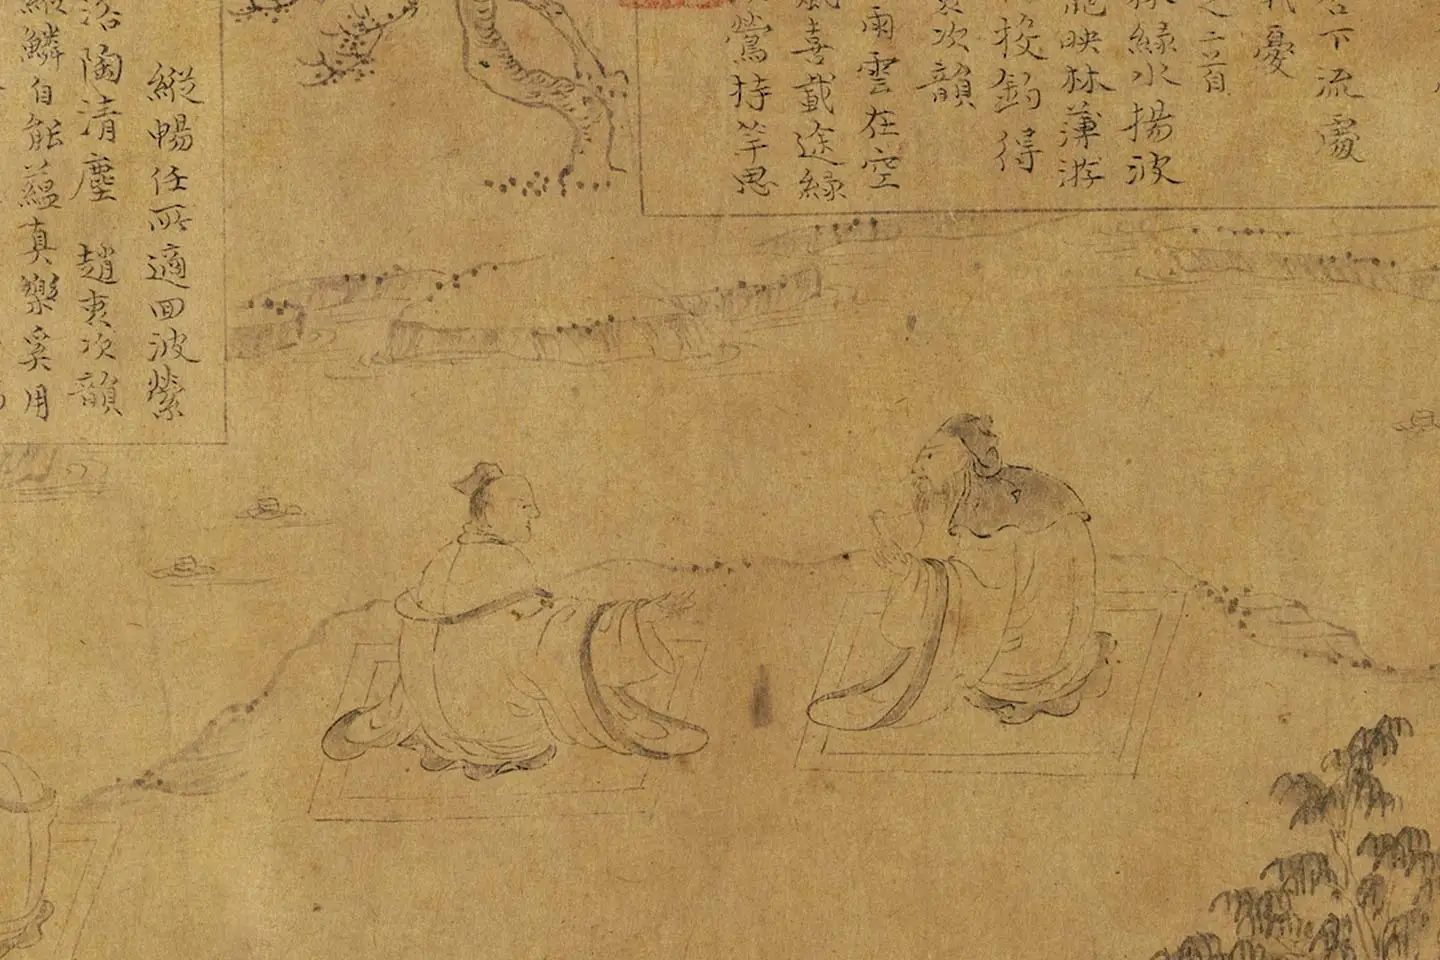 下流處
憂
綠水揚波
葩映林薄游
投釣得
次韻
雨雲在空
風喜載途緑
鶯持竿思
縱暢任所適回波縈
陶清塵 趙夷次韻
鱗自能蘊真樂奚用